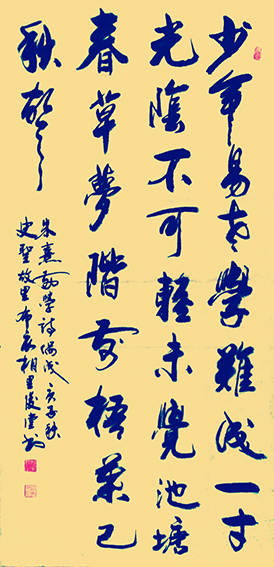 少年易老學難成一寸
光陰不可輕未覺池塘
春草夢階前梧葉已
秋聲
朱熹勸學詩偶成庚子秋
史聖故里布衣相里